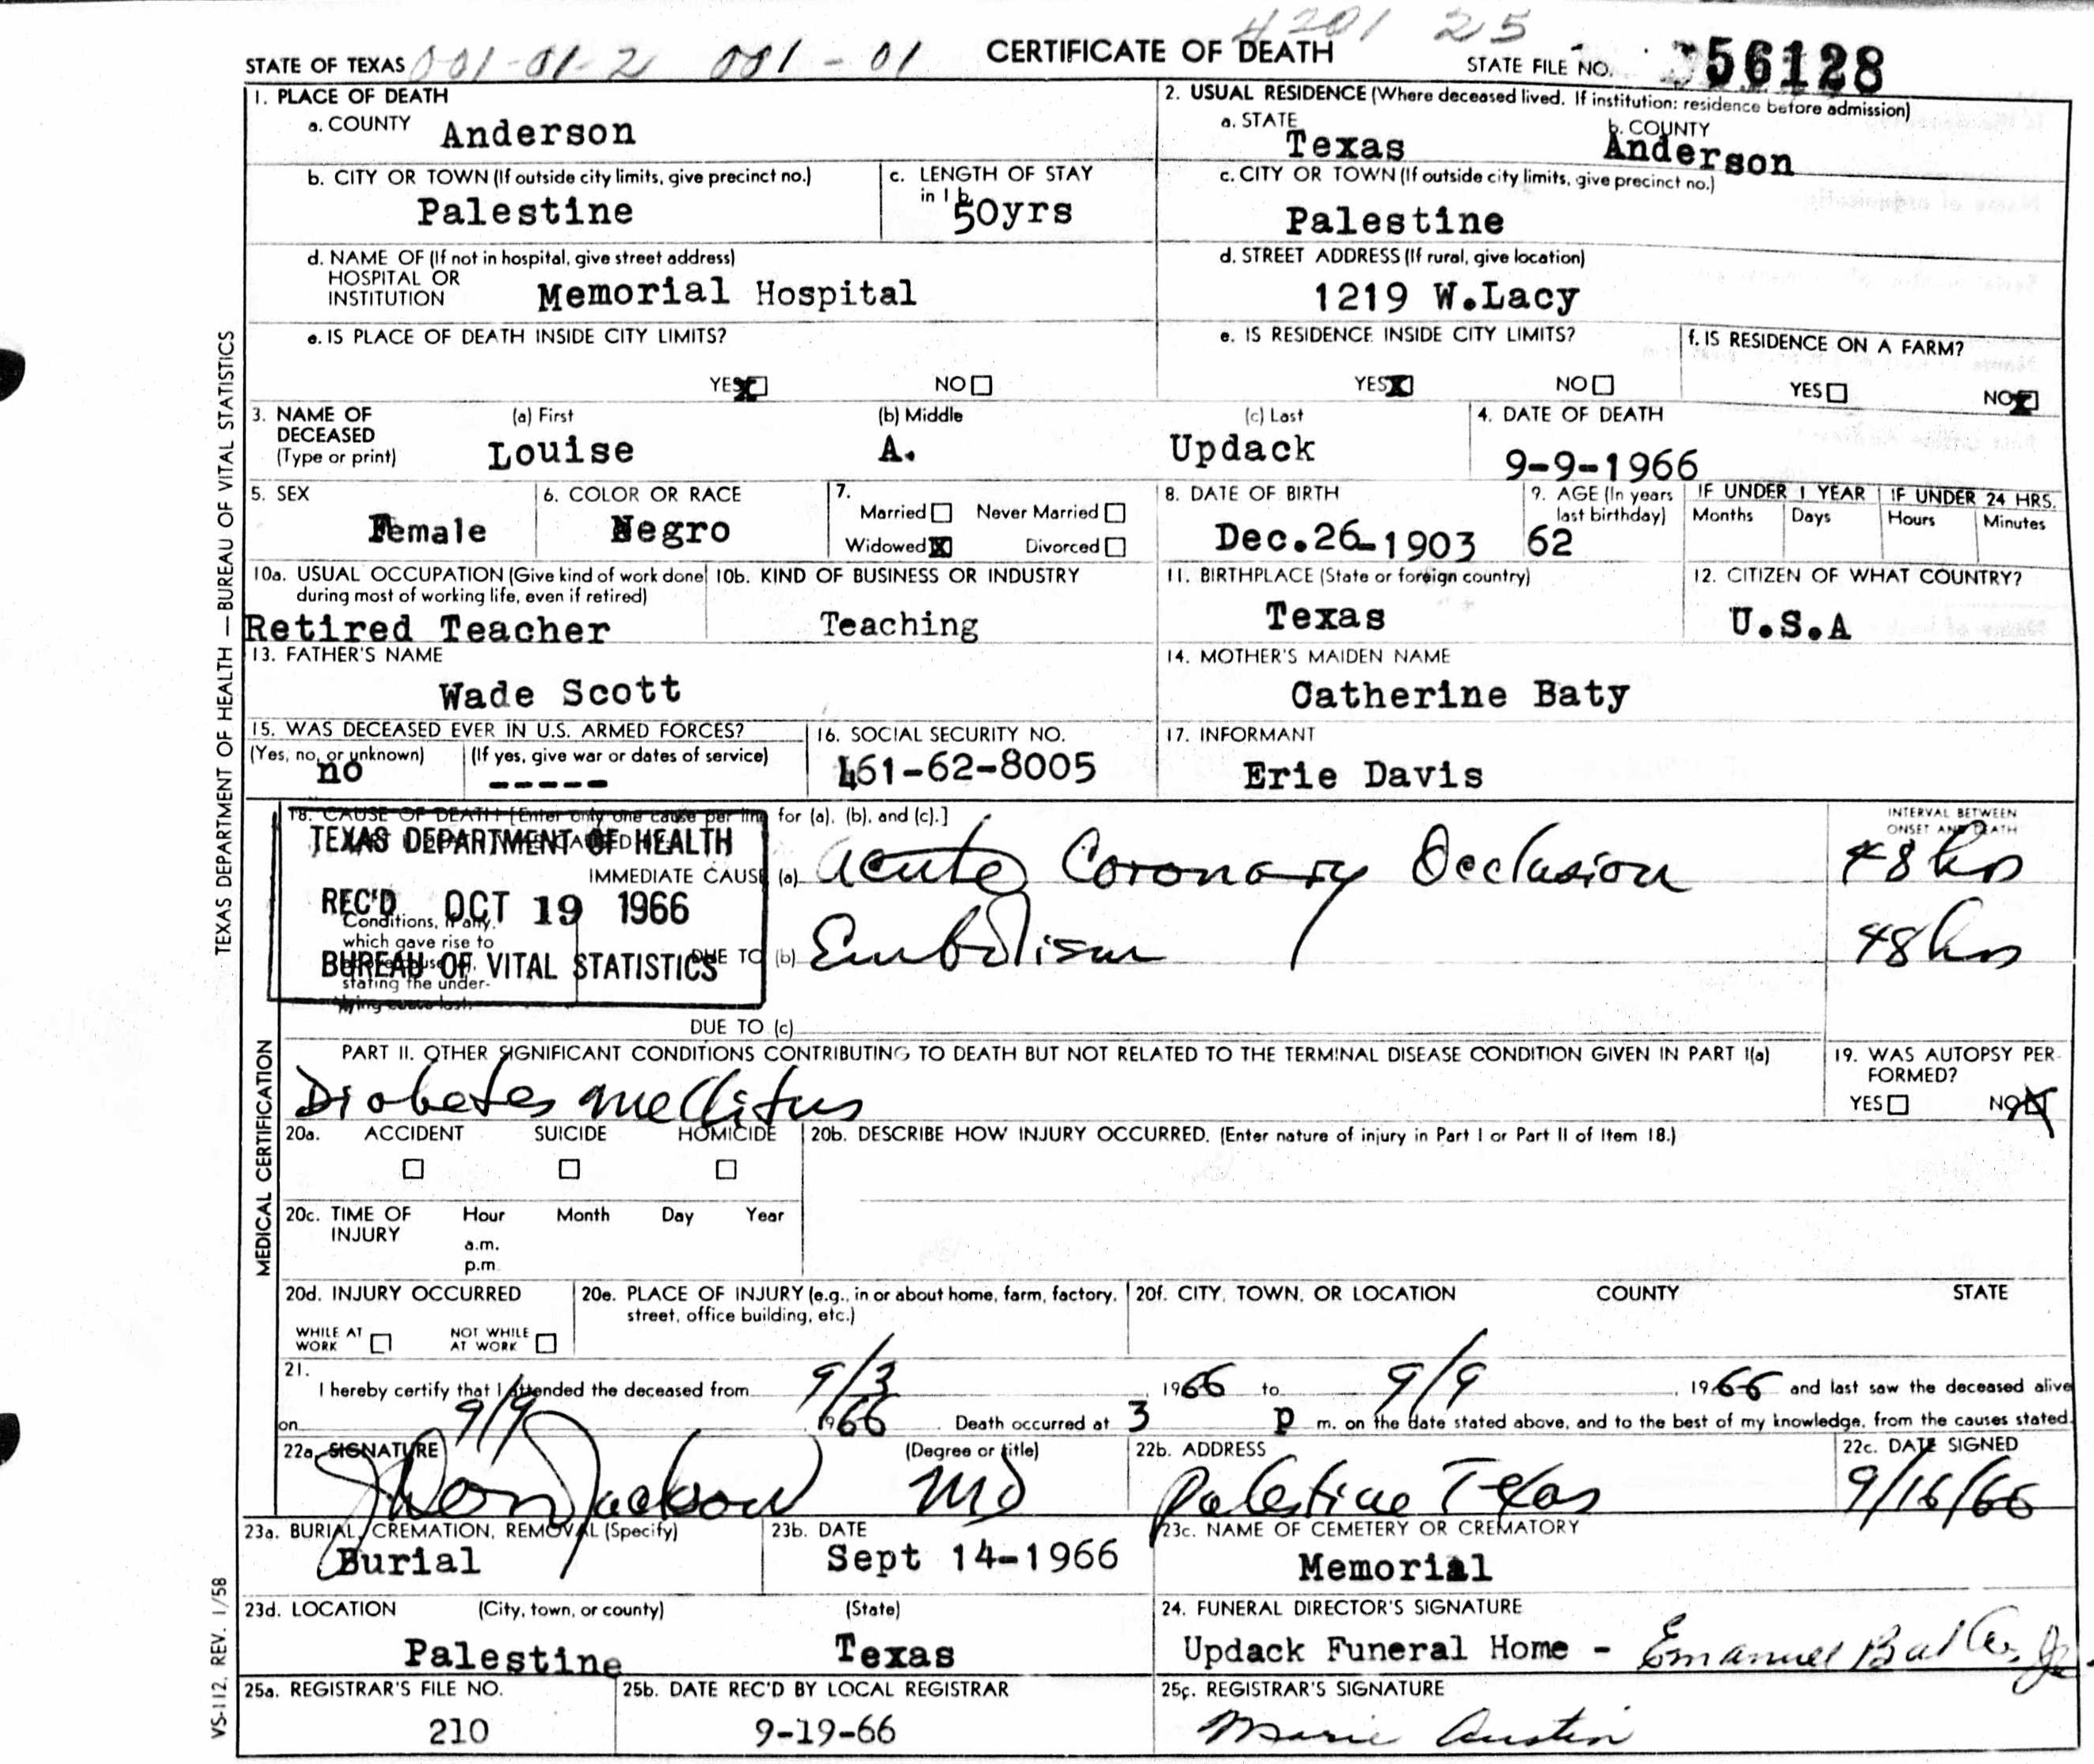 4201 25
STATE OF TEXAS 001-01-2 001-01 CERTIFICATE OF DEATH STATE FILE NO. 56128
1. PLACE OF DEATH
a. COUNTY Anderson
2. USUAL RESIDENCE (Where deceased lived. If institution: residence before admission)
a. STATE Texas b. COUNTY Anderson
b. CITY OR TOWN (If outside city limits, give precinct no.) Palestine
c. LENGTH OF STAY in 1b 50yrs
c. CITY OR TOWN (If outside city limits, give precinct no.) Palestine
d. NAME OF (If not in hospital, give street address)
HOSPITAL OR
INSTITUTION Memorial Hospital
d. STREET ADDRESS (If rural, give location)
1219 W.Lacy
e. IS PLACE OF DEATH INSIDE CITY LIMITS?
YES X NO
e. IS RESIDENCE INSIDE CITY LIMITS?
YES X NO
f. IS RESIDENCE ON A FARM?
YES NO X
3. NAME OF DECEASED (Type or print)
(a) First (b) Middle (c) Last
Louise A. Updack
4. DATE OF DEATH
9-9-1966
5. SEX
Female
6. COLOR OR RACE
Negro
7.
Married Never Married
Widowed X Divorced
8. DATE OF BIRTH
Dec.26-1903
9. AGE (In years last birthday)
62
IF UNDER 1 YEAR IF UNDER 24 HRS.
Months Days Hours Minutes
10a. USUAL OCCUPATION (Give kind of work done during most of working life, even if retired)
Retired Teacher
10b. KIND OF BUSINESS OR INDUSTRY
Teaching
11. BIRTHPLACE (State or foreign country)
Texas
12. CITIZEN OF WHAT COUNTRY?
U.S.A
13. FATHER'S NAME
Wade Scott
14. MOTHER'S MAIDEN NAME
Catherine Baty
15. WAS DECEASED EVER IN U.S. ARMED FORCES?
(Yes, no, or unknown) (If yes, give war or dates of service)
no -----
16. SOCIAL SECURITY NO.
461-62-8005
17. INFORMANT
Erie Davis
18. CAUSE OF DEATH [Enter only one cause per line for (a), (b), and (c).]
INTERVAL BETWEEN
ONSET AND DEATH
TEXAS DEPARTMENT OF HEALTH
REC'D OCT 19 1966
BUREAU OF VITAL STATISTICS
IMMEDIATE CAUSE (a) Acute Coronary Occlusion 48 hrs
Conditions, if any,
which gave rise to
stating the under-
lying cause last.
DUE TO (b) Embolism 48 hrs
DUE TO (c)
PART II. OTHER SIGNIFICANT CONDITIONS CONTRIBUTING TO DEATH BUT NOT RELATED TO THE TERMINAL DISEASE CONDITION GIVEN IN PART I(a)
Diabetes mellitus
19. WAS AUTOPSY PER-
FORMED?
YES NO X
20a. ACCIDENT SUICIDE HOMICIDE
20b. DESCRIBE HOW INJURY OCCURRED. (Enter nature of injury in Part I or Part II of Item 18.)
20c. TIME OF INJURY Hour Month Day Year
a.m.
p.m.
20d. INJURY OCCURRED
WHILE AT WORK NOT WHILE AT WORK
20e. PLACE OF INJURY (e.g., in or about home, farm, factory, street, office building, etc.)
20f. CITY, TOWN, OR LOCATION COUNTY STATE
21.
I hereby certify that I attended the deceased from 9/3, 1966 to 9/9, 1966 and last saw the deceased alive
on 9/9 1966. Death occurred at 3 P m. on the date stated above, and to the best of my knowledge, from the causes stated.
22a. SIGNATURE (Degree or title)
Jackson MD
22b. ADDRESS
Palestine Texas
22c. DATE SIGNED
9/16/66
23a. BURIAL, CREMATION, REMOVAL (Specify)
Burial
23b. DATE
Sept 14-1966
23c. NAME OF CEMETERY OR CREMATORY
Memorial
23d. LOCATION (City, town, or county) (State)
Palestine Texas
24. FUNERAL DIRECTOR'S SIGNATURE
Updack Funeral Home - Emanuel Jr.
25a. REGISTRAR'S FILE NO.
210
25b. DATE REC'D BY LOCAL REGISTRAR
9-19-66
25c. REGISTRAR'S SIGNATURE
Marie Austin
TEXAS DEPARTMENT OF HEALTH — BUREAU OF VITAL STATISTICS
MEDICAL CERTIFICATION
VS-112, REV. 1/58